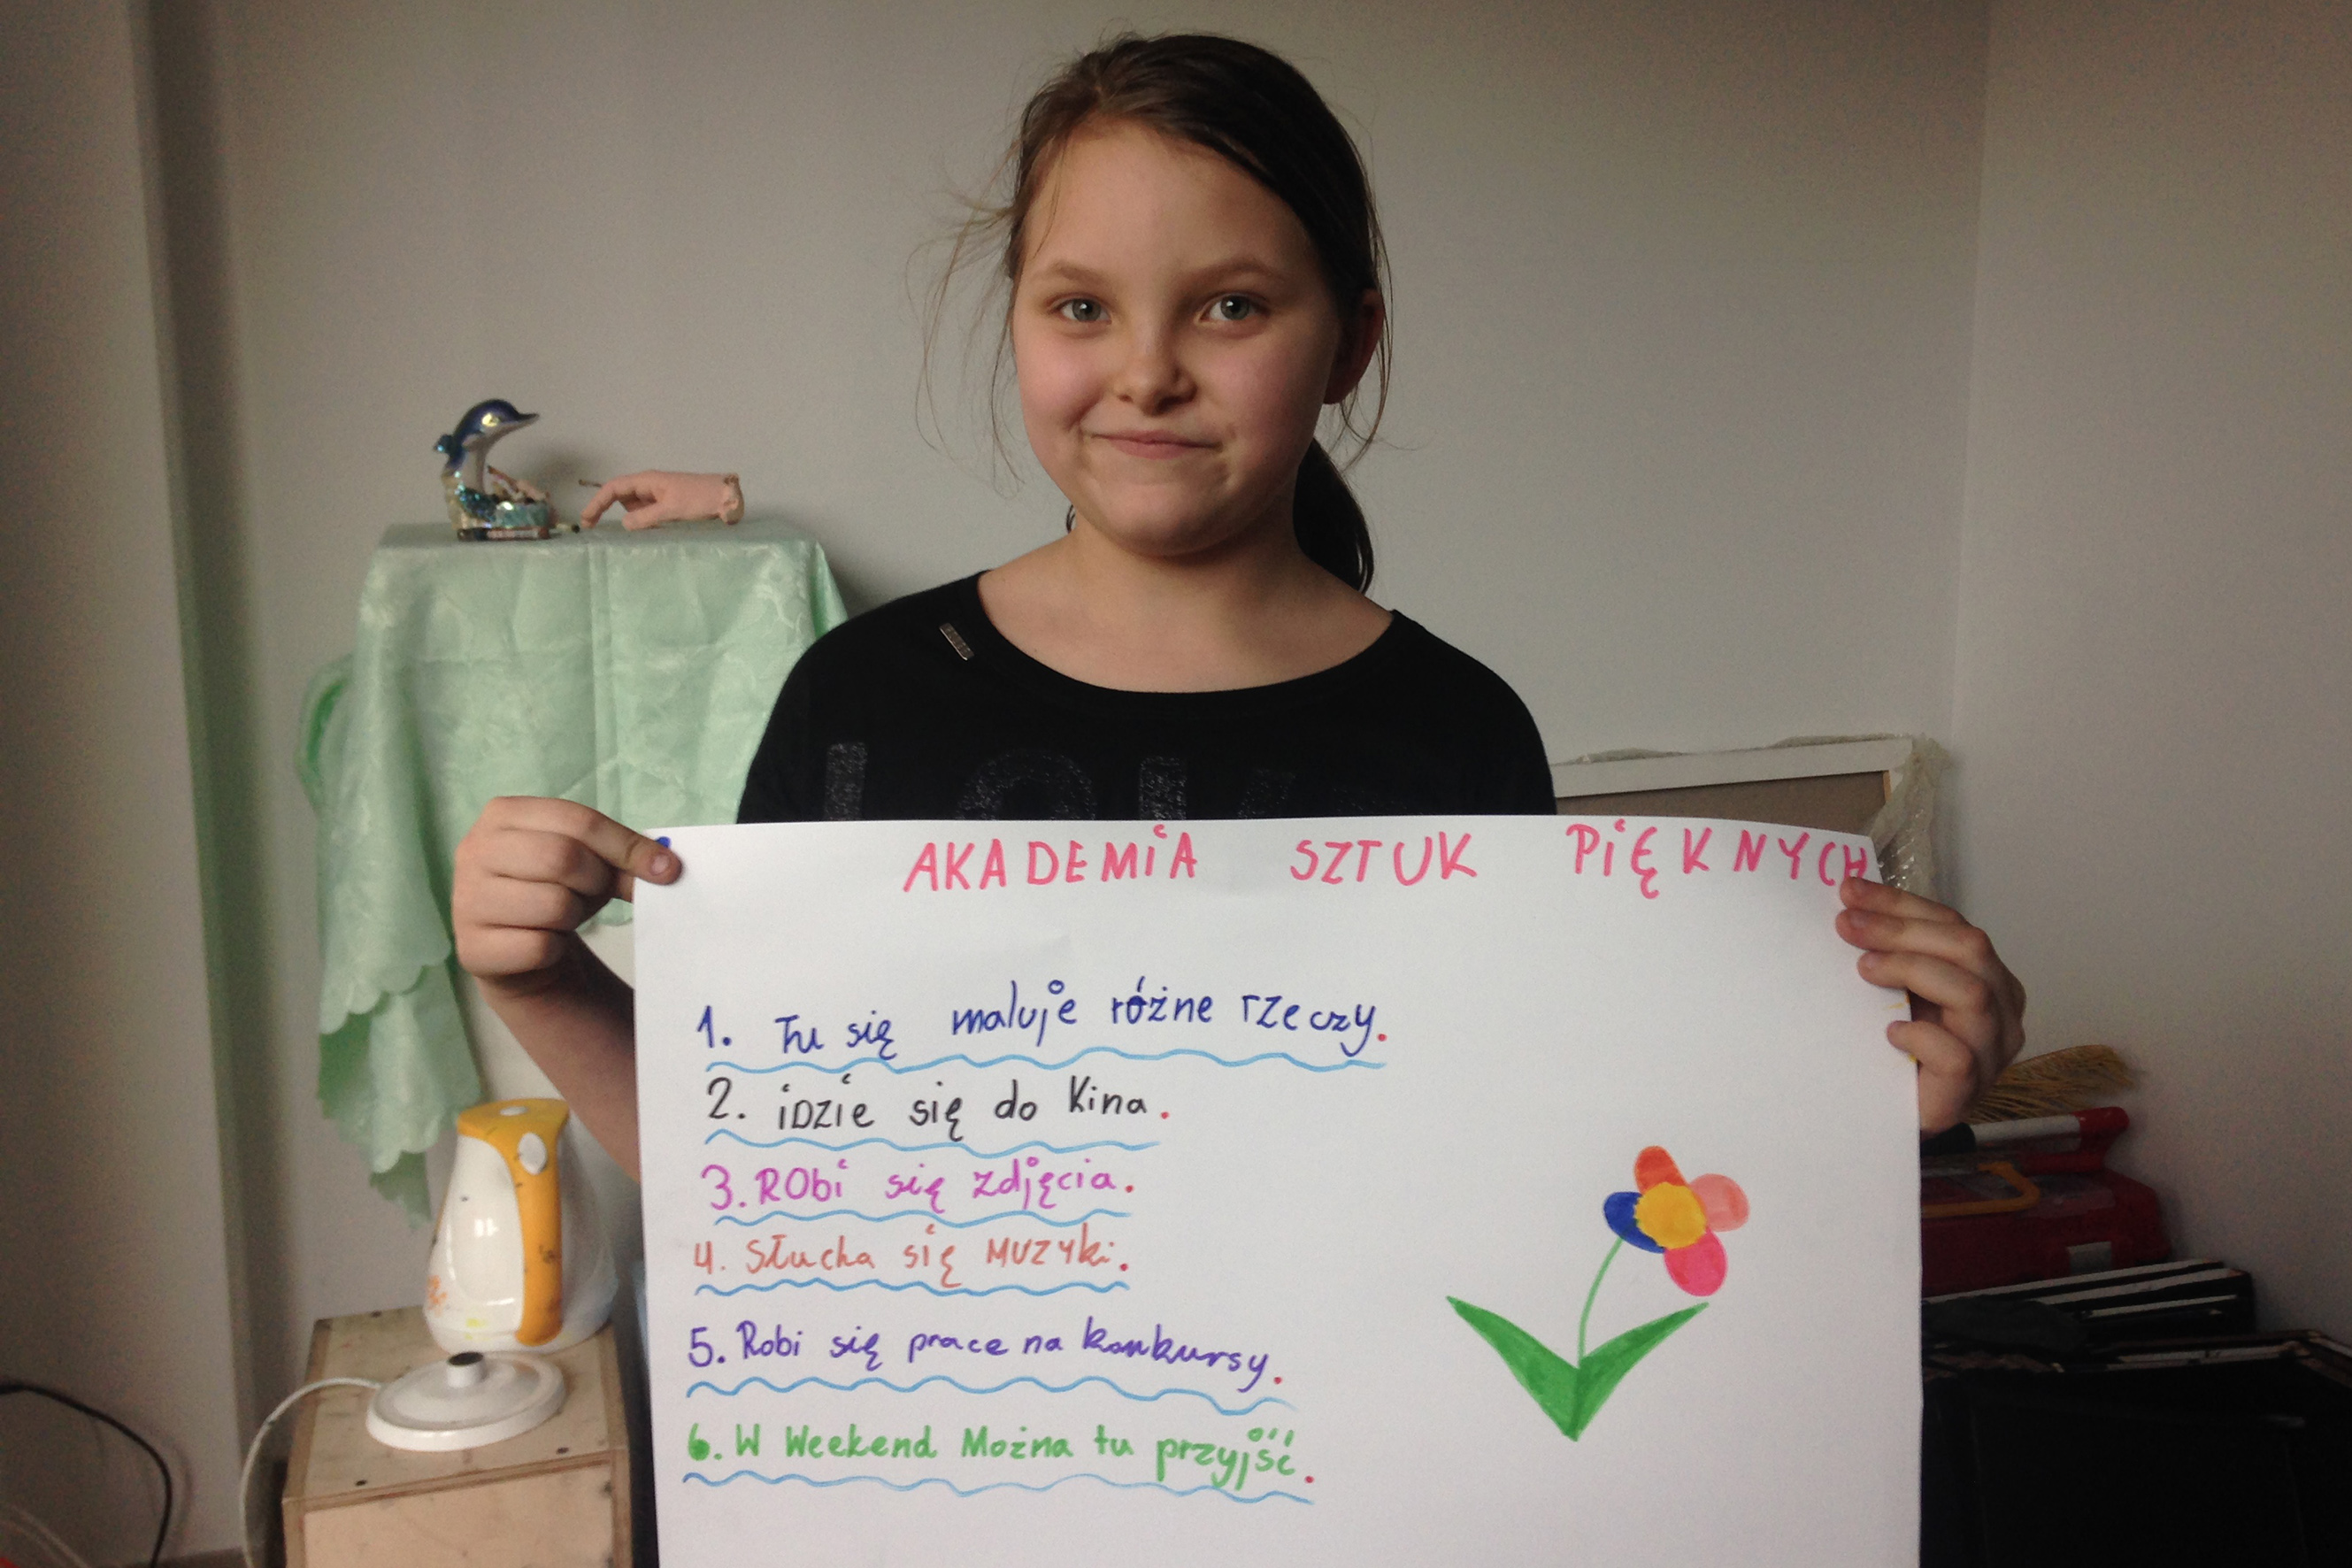 AKADEMiA SZTUK PiĘKNYCH
1. Tu się maluje różne rzeczy.
2. iDZiE się do Kina.
3. RObi się zdjęcia.
4. Słucha się MUZYki.
5. Robi się prace na konkursy.
6. W Weekend Można tu przyjść.